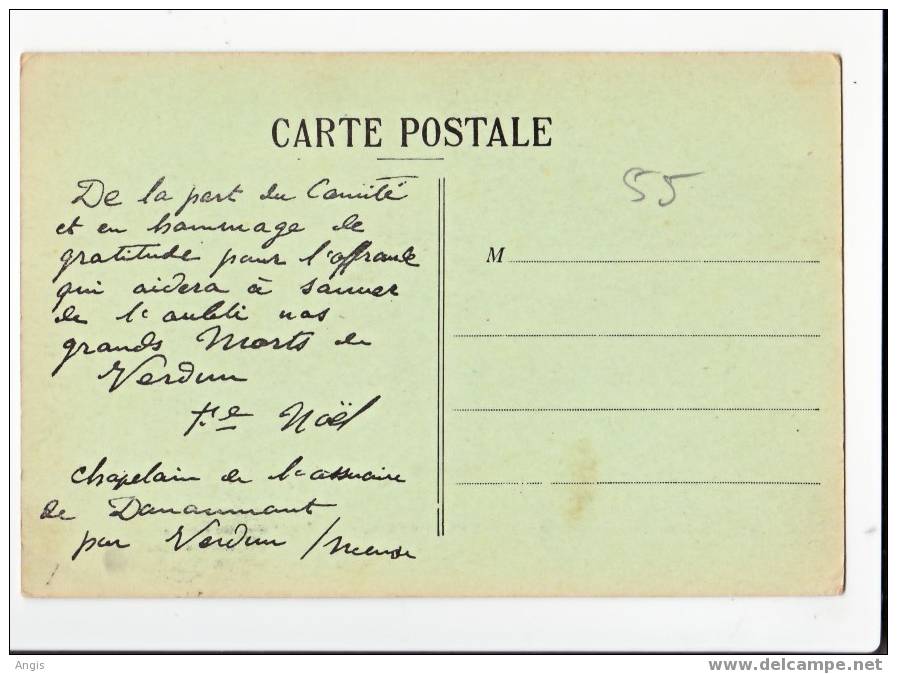 CARTE POSTALE
De la part du Comité
et en hommage de
gratitude pour l'offrande
qui aidera à sauver
de l'oubli nos
grands Morts de
Verdun
Noël
Chapelain de l'ossuaire
de Douaumont
par Verdun / Meuse
55
M
Angis
www.delcampe.net